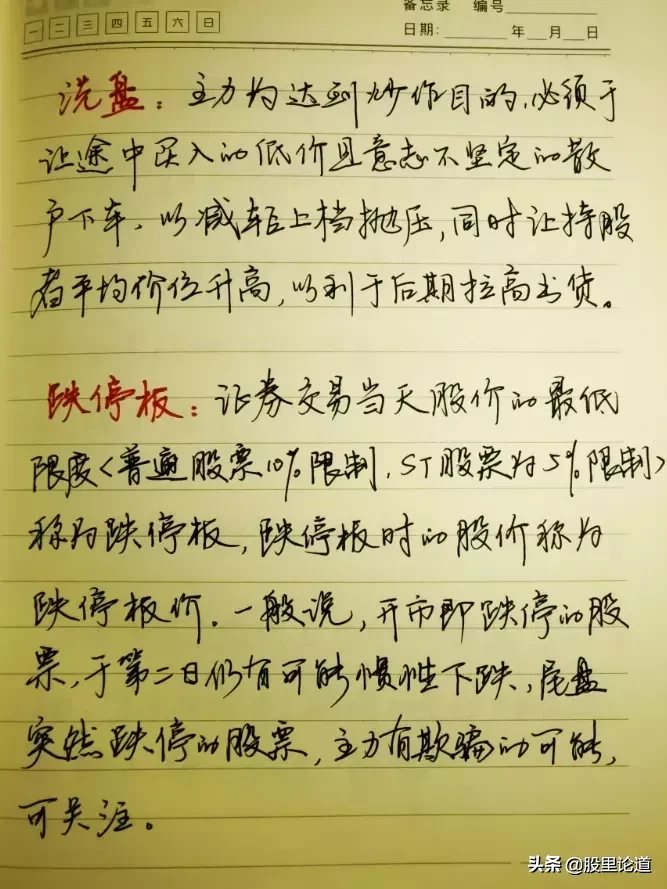 备忘录 编号
一 二 三 四 五 六 日
日期: 年 月 日
洗盘：主力为达到炒作目的，必须于
让途中买入的低价且意志不坚定的散
户下车，以减轻上档抛压，同时让持股
者平均价位升高，以利于后期拉高出货。
跌停板：证券交易当天股价的最低
限度<普通股票10%限制，ST股票为5%限制>
称为跌停板，跌停板时的股价称为
跌停板价。一般说，开市即跌停的股
票，于第二日仍有可能惯性下跌，尾盘
突然跌停的股票，主力有欺骗的可能，
可关注。
头条 @股里论道